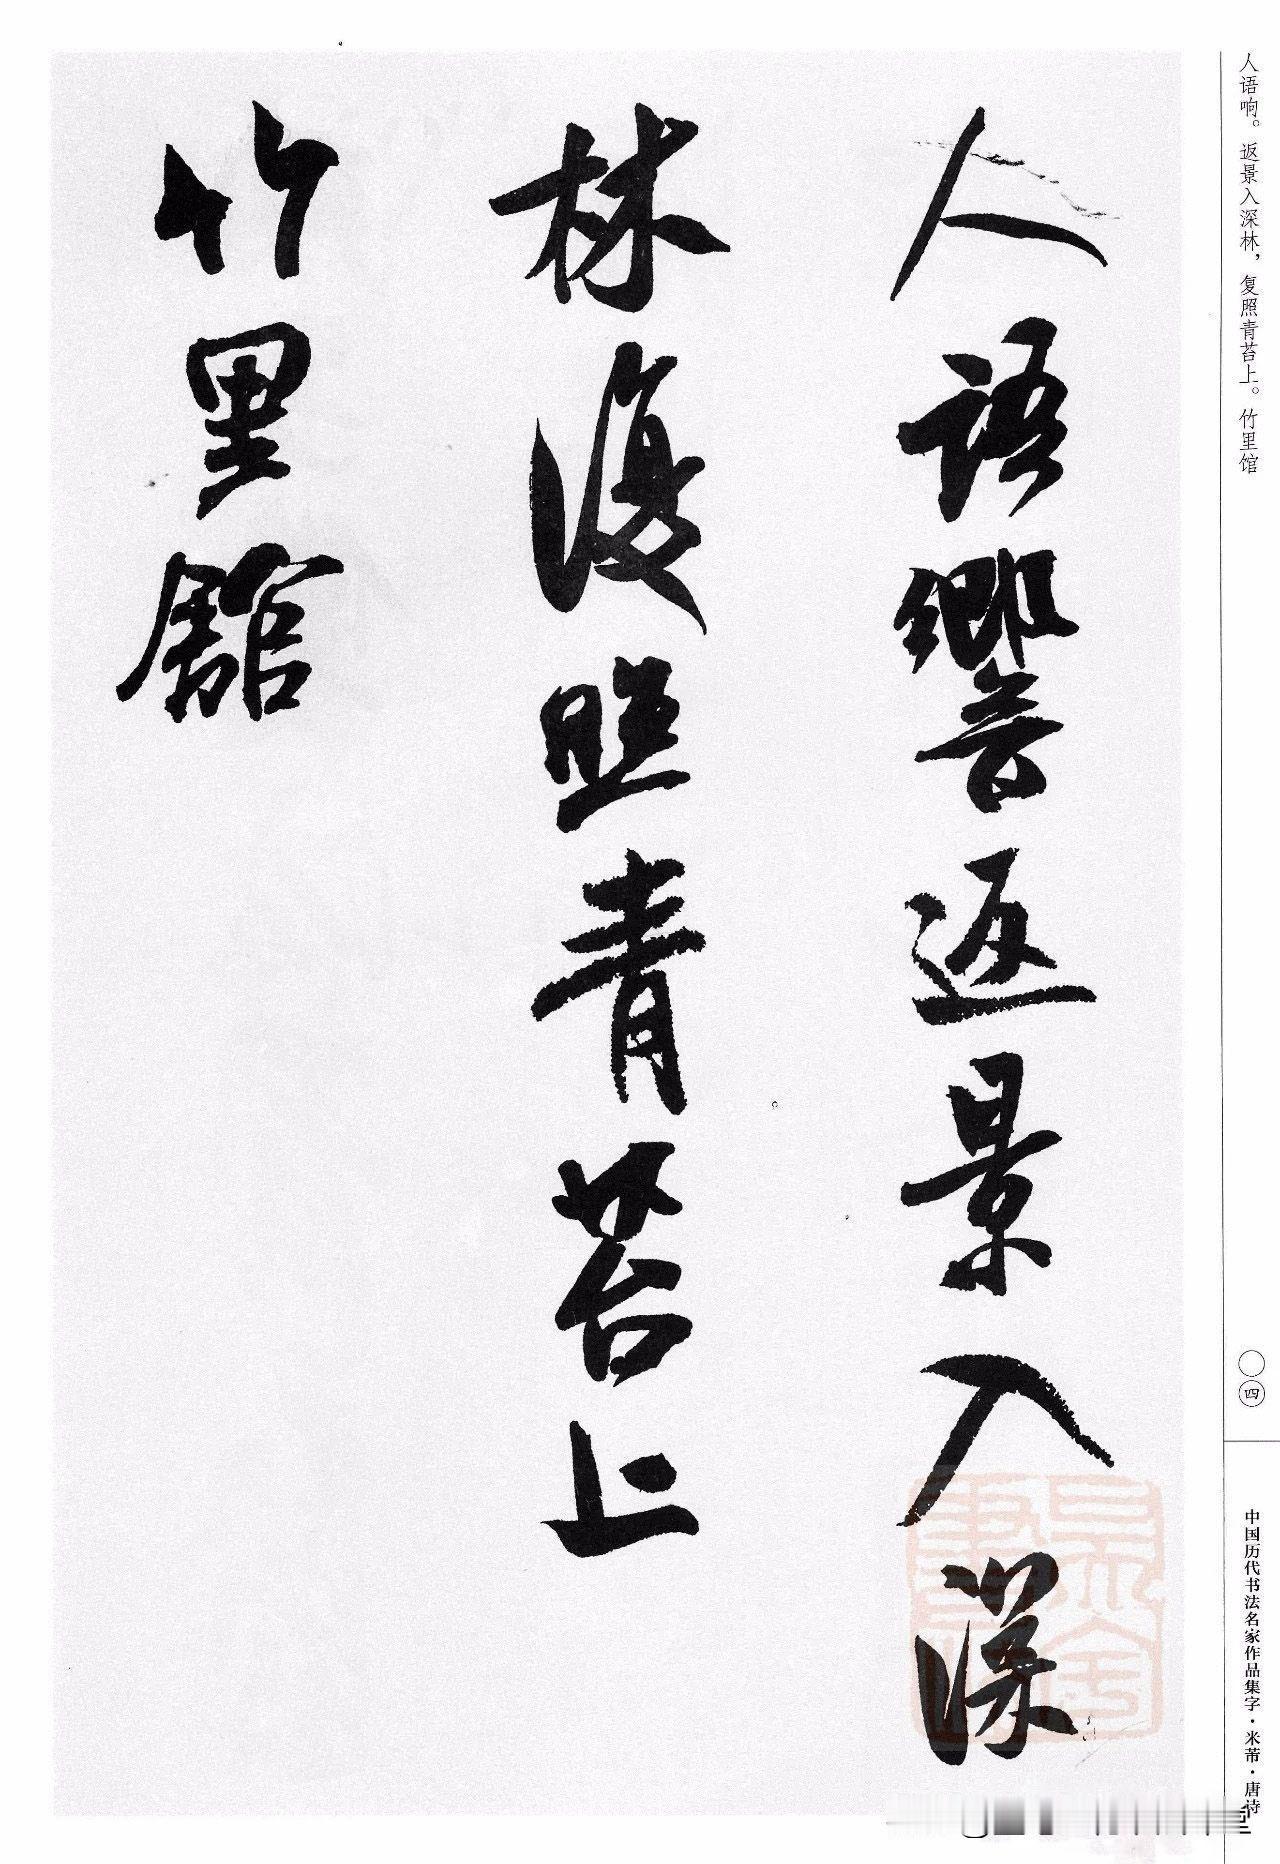 人语响。返景入深林，复照青苔上。竹里馆
〇四
中国历代书法名家作品集字·米芾·唐诗
人語響返景入深
林復照青苔上
竹里館